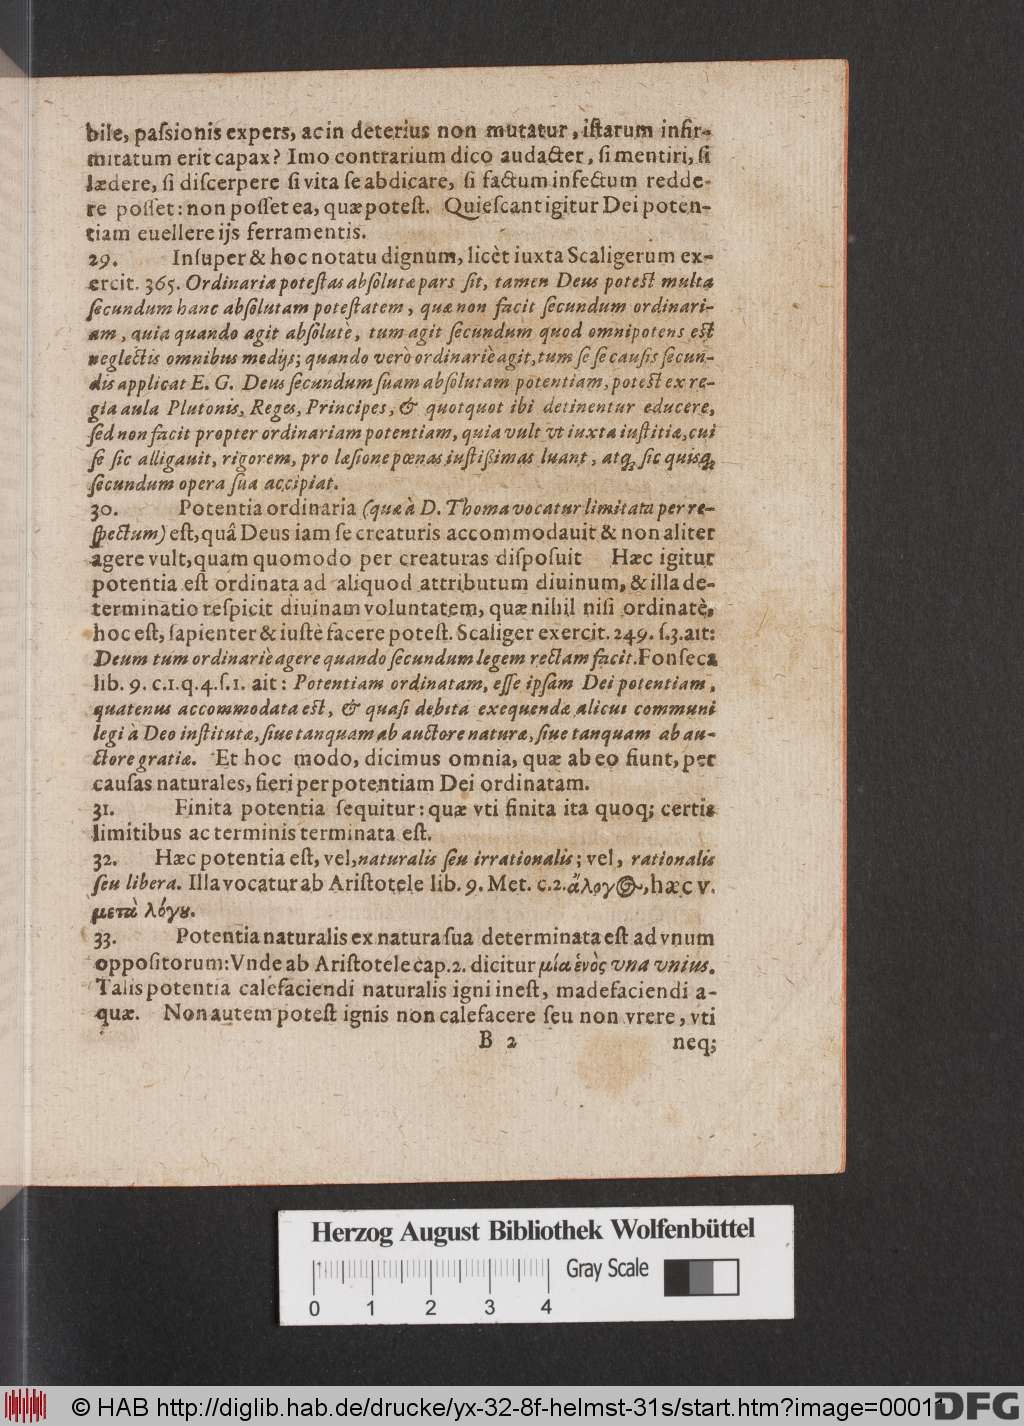 bile, paſsionis expers, ac in deterius non mutatur, iſtarum infir-
mitatum erit capax? Imo contrarium dico audacter, ſi mentiri, ſi
lædere, ſi diſcerpere ſi vita ſe abdicare, ſi factum infectum redde-
re poſſet: non poſſet ea, quæ poteſt. Quieſcant igitur Dei poten-
tiam euellere ijs ferramentis.
29. Inſuper & hoc notatu dignum, licèt iuxta Scaligerum ex-
ercit. 365. Ordinaria poteſtas abſolutæ pars ſit, tamen Deus poteſt multa
ſecundum hanc abſolutam poteſtatem, quæ non facit ſecundum ordinari-
am, quia quando agit abſolutè, tum agit ſecundum quod omnipotens eſt
neglectis omnibus medijs; quando verò ordinariè agit, tum ſe ſe cauſis ſecun-
dis applicat E. G. Deus ſecundum ſuam abſolutam potentiam, poteſt ex re-
gia aula Plutonis, Reges, Principes, & quotquot ibi detinentur educere,
ſed non facit propter ordinariam potentiam, quia vult vt iuxta iuſtitiæ, cui
ſe ſic alligauit, rigorem, pro læſione pœnas iuſtißimas luant, atq; ſic quisq;
ſecundum opera ſua accipiat.
30. Potentia ordinaria (quæ à D. Thoma vocatur limitata per re-
ſpectum) eſt, quâ Deus iam ſe creaturis accommodauit & non aliter
agere vult, quam quomodo per creaturas diſpoſuit Hæc igitur
potentia eſt ordinata ad aliquod attributum diuinum, & illa de-
terminatio reſpicit diuinam voluntatem, quæ nihil niſi ordinatè,
hoc eſt, ſapienter & iuſtè facere poteſt. Scaliger exercit. 249. ſ.3. ait:
Deum tum ordinariè agere quando ſecundum legem rectam facit. Fonſeca
lib. 9. c.1. q.4. ſ.1. ait: Potentiam ordinatam, eſſe ipſam Dei potentiam,
quatenus accommodata eſt, & quaſi debita exequendæ alicui communi
legi à Deo inſtitutæ, ſiue tanquam ab auctore naturæ, ſiue tanquam ab au-
ctore gratiæ. Et hoc modo, dicimus omnia, quæ ab eo fiunt, per
cauſas naturales, fieri per potentiam Dei ordinatam.
31. Finita potentia ſequitur: quæ vti finita ita quoq; certis
limitibus ac terminis terminata eſt.
32. Hæc potentia eſt, vel, naturalis ſeu irrationalis; vel, rationalis
ſeu libera. Illa vocatur ab Ariſtotele lib. 9. Met. c.2. ἄλογος, hæc v.
μετὰ λόγȣ.
33. Potentia naturalis ex natura ſua determinata eſt ad vnum
oppoſitorum: Vnde ab Ariſtotele cap. 2. dicitur μία ἑνὸς vna vnius.
Talis potentia calefaciendi naturalis igni ineſt, madefaciendi a-
quæ. Non autem poteſt ignis non calefacere ſeu non vrere, vti
B 2 neq;
Herzog August Bibliothek Wolfenbüttel
Gray Scale
0 1 2 3 4
© HAB http://diglib.hab.de/drucke/yx-32-8f-helmst-31s/start.htm?image=00011
DFG